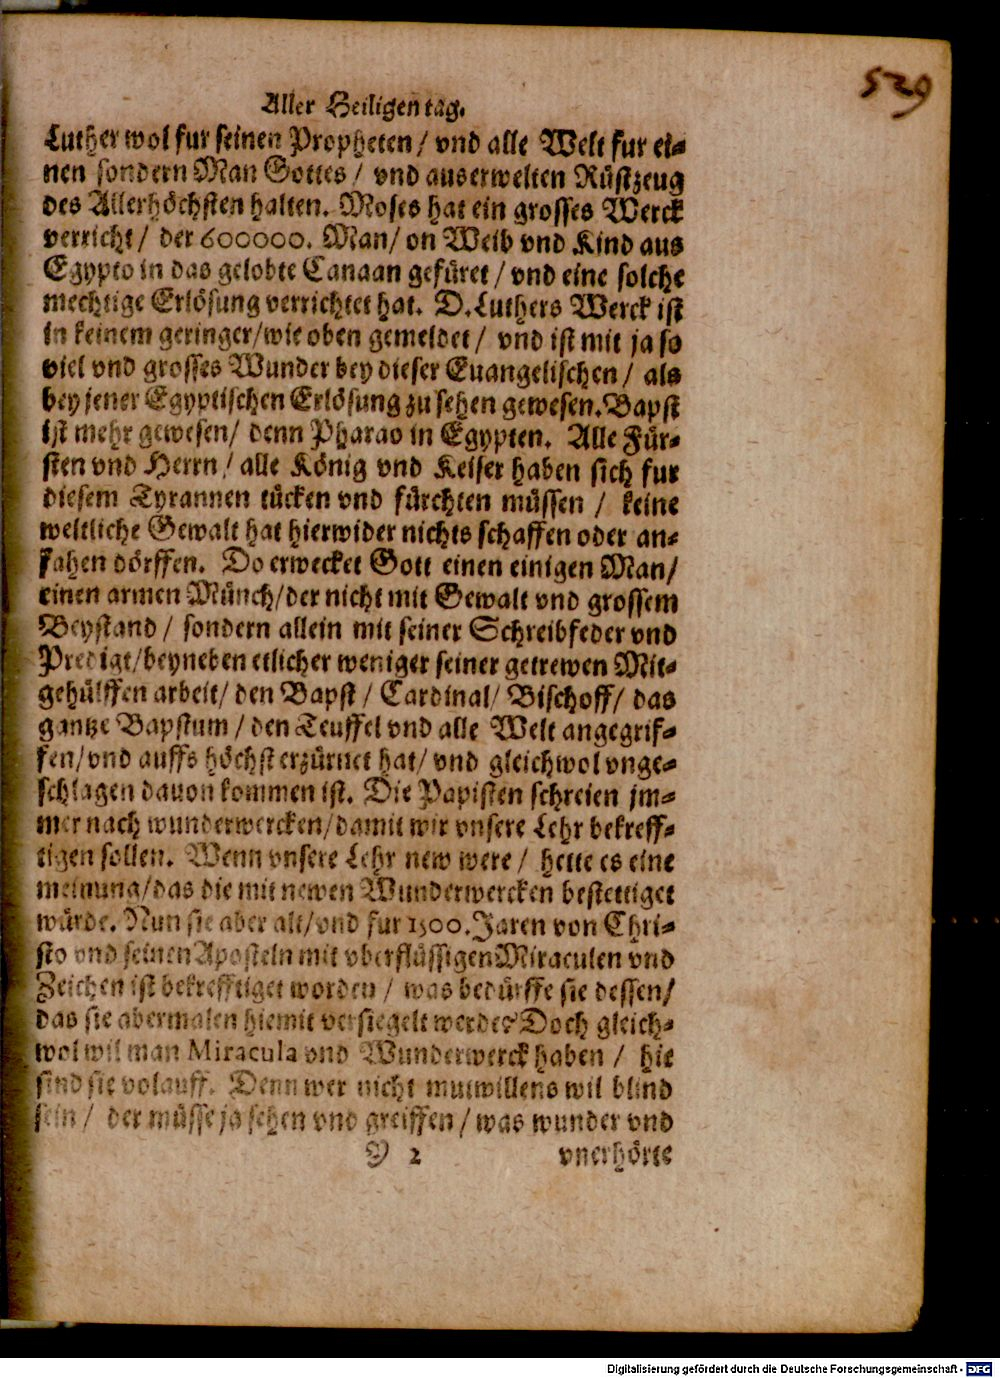 529
Aller Heiligen tag.
Luther wol fur seinen Propheten / vnd alle Welt fur ei-
nen sondern Man Gottes / vnd auserwelten Rüstzeug
des Allerhöchsten halten. Moses hat ein grosses Werck
verricht / der 600000. Man / on Weib vnd Kind aus
Egypto in das gelobte Canaan gefüret / vnd eine solche
mechtige Erlösung verrichtet hat. D. Luthers Werck ist
in keinem geringer / wie oben gemeldet / vnd ist mit ja so
viel vnd grosses Wunder bey dieser Euangelischen / als
bey jener Egyptischen Erlösung zu sehen gewesen. Bapst
ist mehr gewesen / denn Pharao in Egypten. Alle Für-
sten vnd Herrn / alle König vnd Keiser haben sich fur
diesem Tyrannen tücken vnd fürchten müssen / keine
weltliche Gewalt hat hierwider nichts schaffen oder an-
fahen dörffen. Do erwecket Gott einen einigen Man /
einen armen Münch / der nicht mit Gewalt vnd grossem
Beystand / sondern allein mit seiner Schreibfeder vnd
Predigt / beyneben etlicher weniger seiner getrewen Mit-
gehülffen arbeit / den Bapst / Cardinal / Bischoff / das
gantze Bapstum / den Teuffel vnd alle Welt angegrif-
fen / vnd auffs höchst erzürnet hat / vnd gleichwol vnge-
schlagen dauon kommen ist. Die Papisten schreien jm-
mer nach wunderwercken / damit wir vnsere Lehr bekreff-
tigen sollen. Wenn vnsere Lehr new were / hette es eine
meinung / das die mit newen Wunderwercken bestettiget
würde. Nun sie aber alt / vnd fur 1500. Jaren von Chri-
sto vnd seinen Aposteln mit vberflüssigen Miraculen vnd
Zeichen ist bekrefftiget worden / was bedürffe sie dessen /
das sie abermalen hiemit versiegelt werde? Doch gleich-
wol wil man Miracula vnd Wunderwerck haben / hie
sind sie volauff. Denn wer nicht mutwillens wil blind
sein / der müsse ja sehen vnd greiffen / was wunder vnd
Y 2 vnerhörte
Digitalisierung gefördert durch die Deutsche Forschungsgemeinschaft - DFG